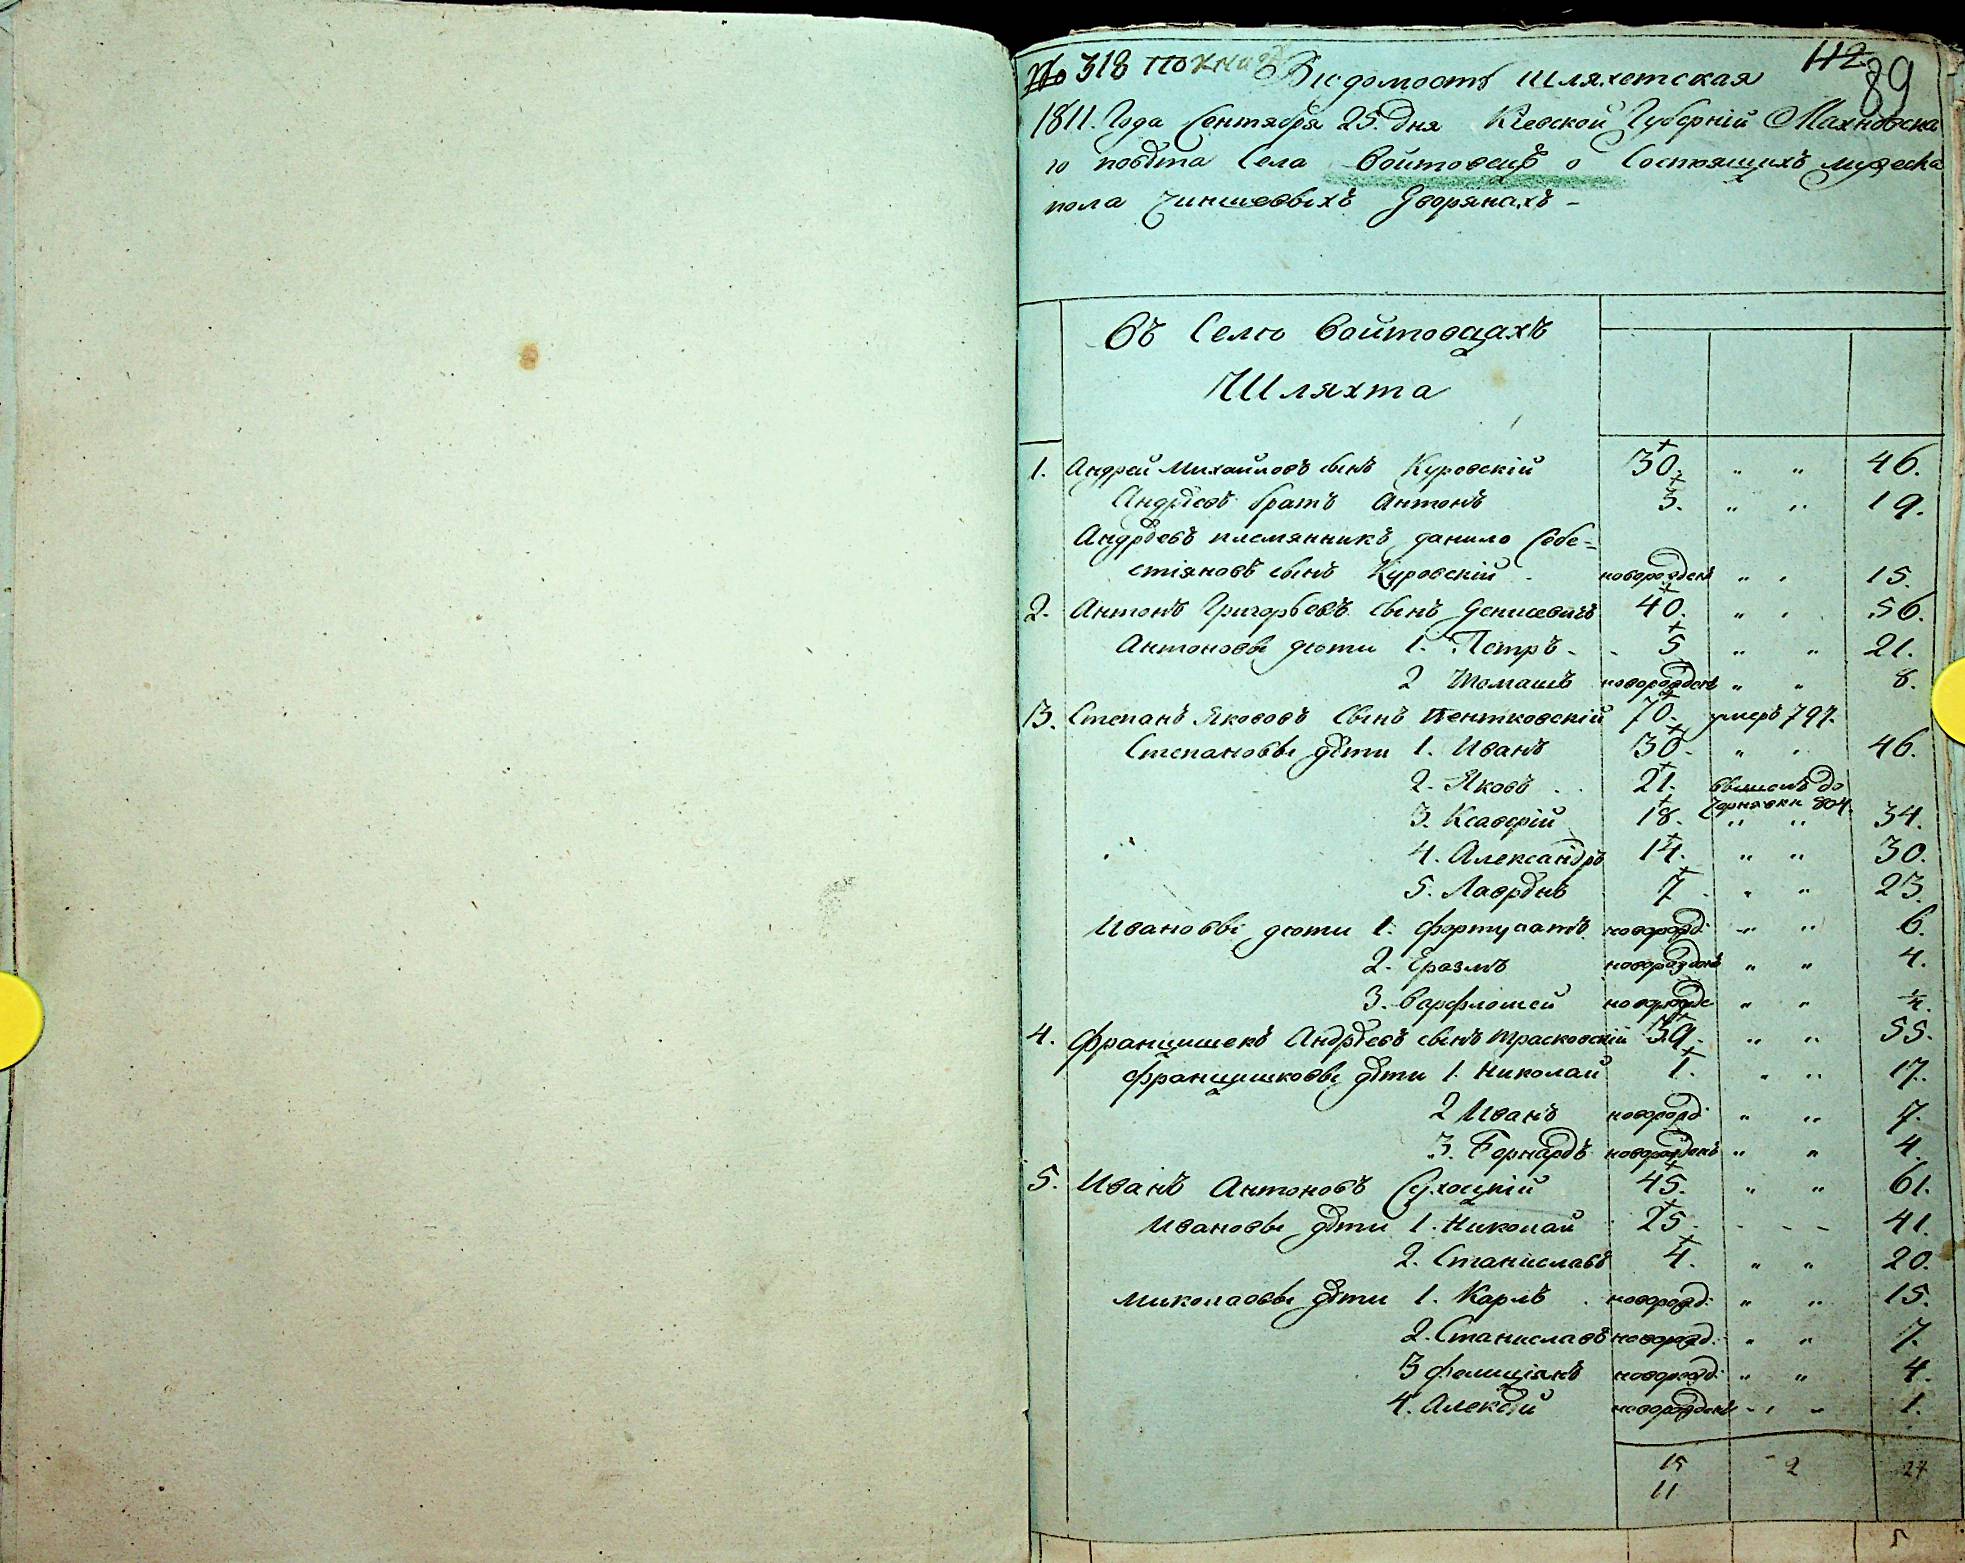 318 по книг 112 89
Видомость шляхетская
1811. Года Сентября 25. дня Кіевской Губерніи Махновска
го повѣта Села Войтовецъ о Состоящихъ мужеска
пола Чиншевыхъ Дворянахъ -
Въ Селѣ Войтовцахъ
Шляхта
1. Андрей Михайловъ сынъ Куровскій 30. " " 46.
Андрѣевъ братъ Антонъ 3. " " 19.
Андрѣевъ племянникъ данило Себе=
стіяновъ сынъ Куровскій - новорожденъ " " 15.
2. Антонъ Григорьевъ сынъ Денисевичъ 40. " " 56.
Антоновы дѣти 1. Петръ - 5 " " 21.
2 Томашъ новорожденъ " " 8.
3. Степанъ Якововъ Сынъ Пентковскій 70. умеръ 797.
Степановы дѣти 1. Иванъ 30. " " 46.
2. Яковъ 21. вышелъ до
Чернявки 804.
3. Ксаверій 18. " " 34.
4. Александръ 14. " " 30.
5. Лаврѣнъ 7 " " 23.
Ивановы дѣти 1. Фортунатъ новорожд: " " 6.
2. Еразмъ новорожденъ " " 4.
3. Варфломей новорожде " " ¼.
4. Францишекъ Андрѣевъ сынъ Трасковскій 39. " " 55.
Францишковы дѣти 1. Николай 1. " " 17.
2 Иванъ новорожд: " " 7.
3. Бернардъ новорожденъ " " 4.
5. Иванъ Антоновъ Сухоцкій 45. " " 61.
Ивановы дѣти 1. Николай 25. - - - 41.
2. Станиславъ 4. " " 20.
Миколаовы дѣти 1. Карлъ новорожд: " " 15.
2. Станиславъ новорожд: " " 7.
3 Фелиціянъ новорожд: " " 4.
4. Алексѣй новорожденъ " " 1.
15 2 24
11
5